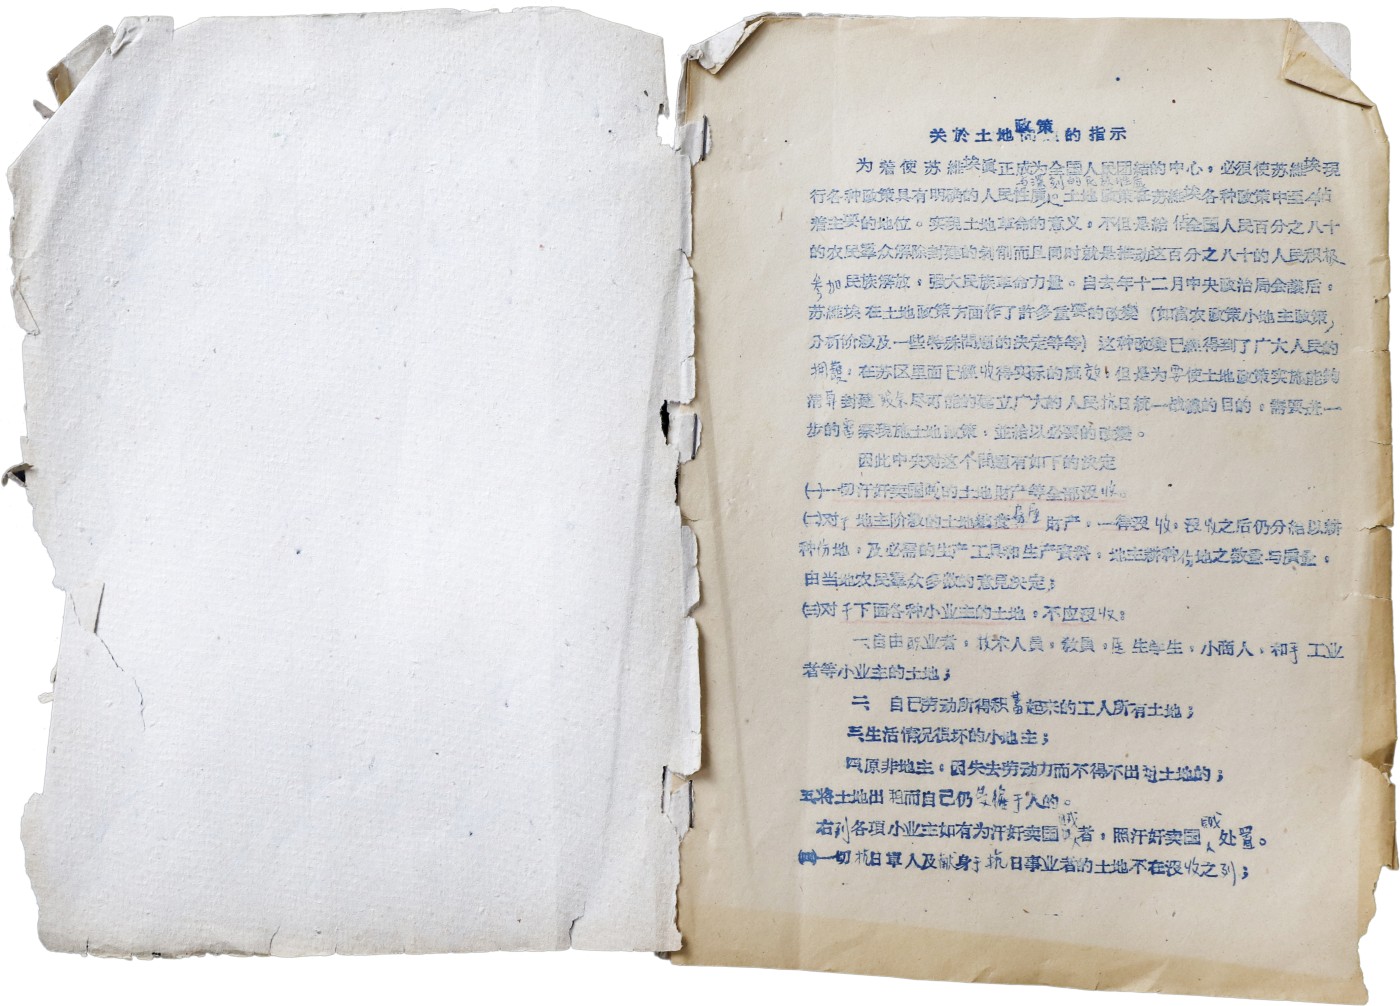 关於土地政策的指示
为着使苏维埃真正成为全国人民团结的中心，必须使苏维埃现
与深刻的民族性质
行各种政策具有明确的人民性质 土地政策在苏维埃各种政策中至今佔
着主要的地位。实现土地革命的意义，不但是給佔全国人民百分之八十
的农民羣众解除封建的剥削而且同时就是推动这百分之八十的人民积极
参加民族解放，强大民族革命力量。自去年十二月中央政治局会議后，
苏維埃在土地政策方面作了許多重要的改變（如富农政策小地主政策，
分析阶級及一些特殊問題的决定等等）这种改變已經得到了广大人民的
拥護，在苏区里面已經收得实际的成效；但是为要使土地政策实施能夠
清算封建 尽可能的建立广大的人民抗日統一战綫的目的，需要进一
步的 察现施土地政策，並給以必要的改變。
因此中央对这个問題有如下的决定
㈠一切汗奸卖国賊的土地財产等全部沒收。
㈡对于地主阶級的土地糧食房屋財产，一律沒收，沒收之后仍分給以耕
种份地，及必需的生产工具和生产資料，地主耕种份地之数量与质量，
由当地农民羣众多数的意見决定；
㈢对于下面各种小业主的土地，不应沒收。
一、自由职业者，技术人員，敎員，医生学生，小商人，和手工业
者等小业主的土地；
二 自已劳动所得积蓄起来的工人所有土地；
三生活情况很坏的小地主；
四原非地主，因失去劳动力而不得不出租土地的；
五将土地出租而自己仍受僱于人的。
右列各項小业主如有为汗奸卖国賊人者，照汗奸卖国賊人处置。
㈣一切抗日軍人及献身于抗日事业者的土地不在沒收之列；